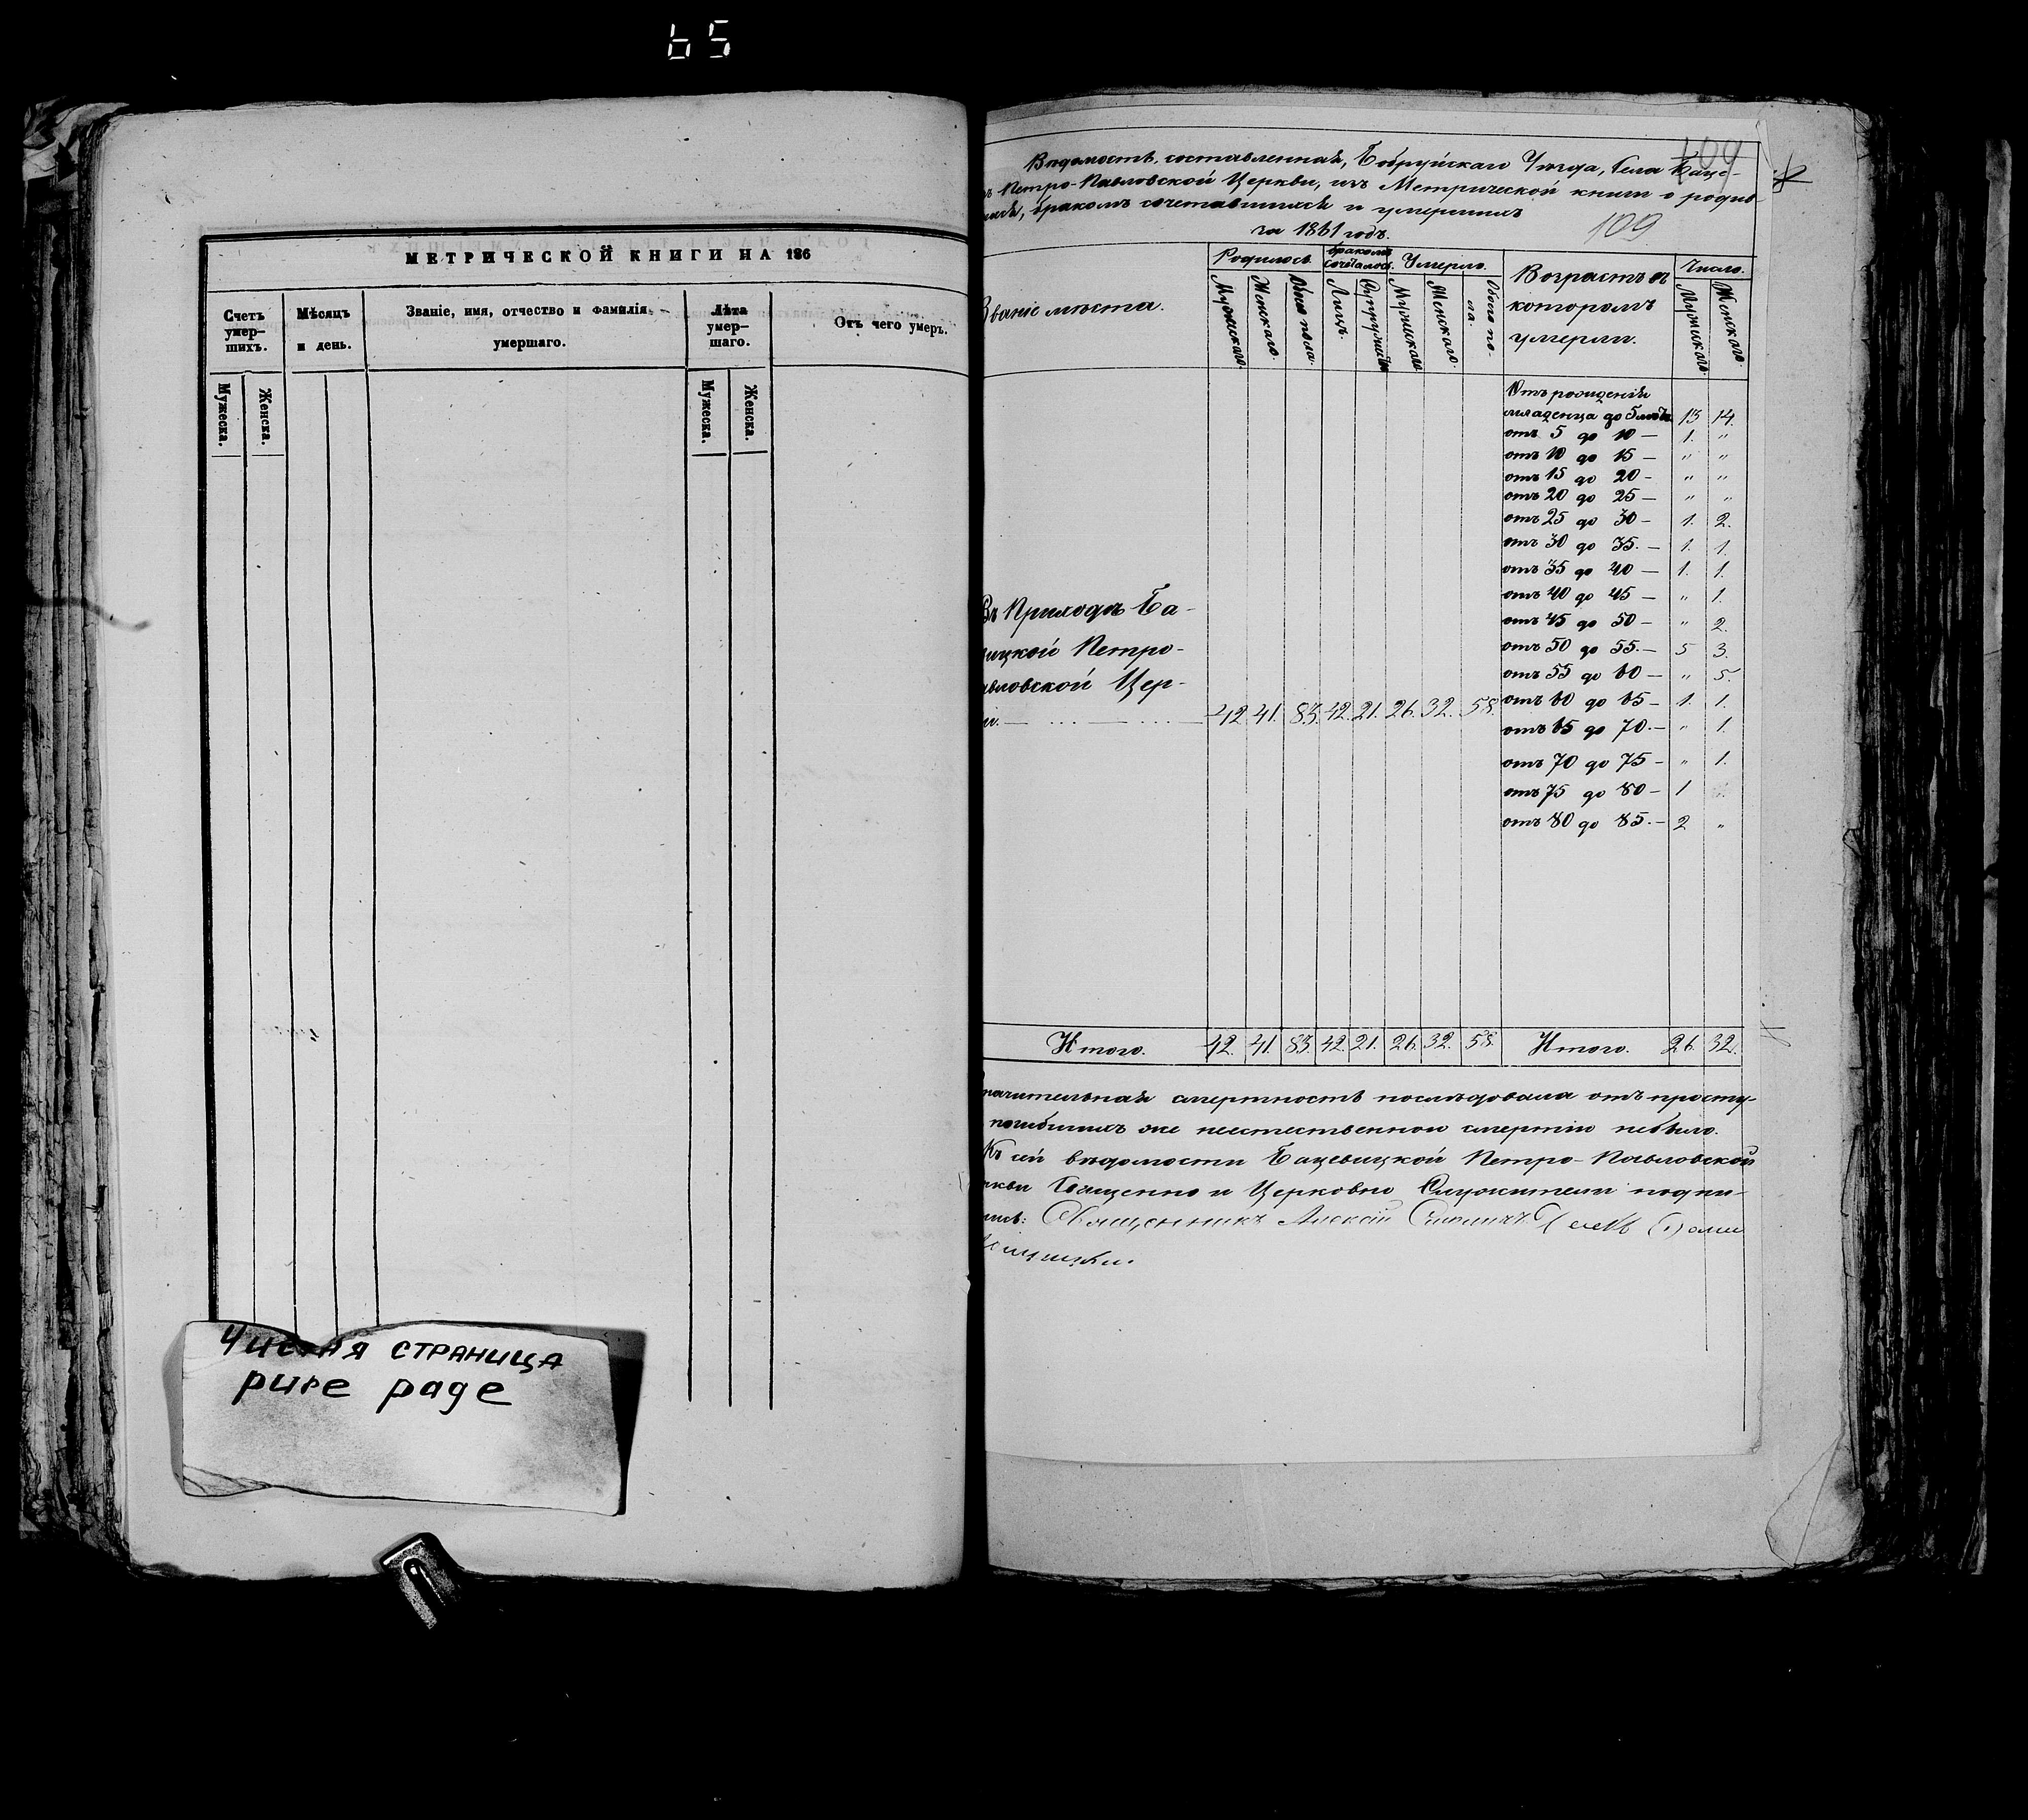 65
МЕТРИЧЕСКОЙ КНИГИ НА 186
Счетъ умер- шихъ.
Мѣсяцъ и день.
Званіе, имя, отчество и фамилія умершаго.
Лѣта умер- шаго.
Отъ чего умеръ.
Мужеска.
Женска.
Мужеска.
Женска.
Чистая страница
pure page
109
Вѣдомость, составленная, Бобруйскаго Уѣзда, Села Баце-
Петро-Павловской Церкви, изъ Метрической книги о родив-
бракомъ сочетавшихся и умершихъ
за 1861 годъ.
109
Званіе мѣста.
Родилось
бракомъ сочеталось.
Умерло.
Возрастъ въ которомъ умерли.
Число.
Мужескаго.
Женскаго.
Обоего пола.
Лицъ.
Супружествъ
Мужескаго
Женскаго.
Обоего по- ла.
Мужескаго.
Женскаго.
Отъ рожденія
младенца до 5 лѣтъ 13 14.
отъ 5 до 10 — 1. "
отъ 10 до 15 — " "
отъ 15 до 20 - " "
отъ 20 до 25 — " "
отъ 25 до 30 - 1. 2.
отъ 30 до 35. — 1. 1.
отъ 35 до 40 — 1. 1.
отъ 40 до 45 — " 1.
отъ 45 до 50 - " 2.
отъ 50 до 55. — 5 3.
отъ 55 до 60 — " 5.
отъ 60 до 65 - 1. 1.
отъ 65 до 70. — " 1.
отъ 70 до 75 - " 1.
отъ 75 до 80 - 1
отъ 80 до 85. - 2 "
Въ Приходѣ Ба-
вицкой Петро-
авловской Цер-
и. — ... — ... — 42 41. 83. 42. 21. 26. 32. 58.
Итого. 42. 41. 83 42. 21. 26. 32. 58. Итого. 26. 32.
начительная смертность послѣдовала отъ просту-
погибшихъ же неестественною смертію небыло.
Къ сей вѣдомости Бацевицкой Петро-Павловской
ркви Священно и Церковно Служители подпи-
Священникъ Алексій